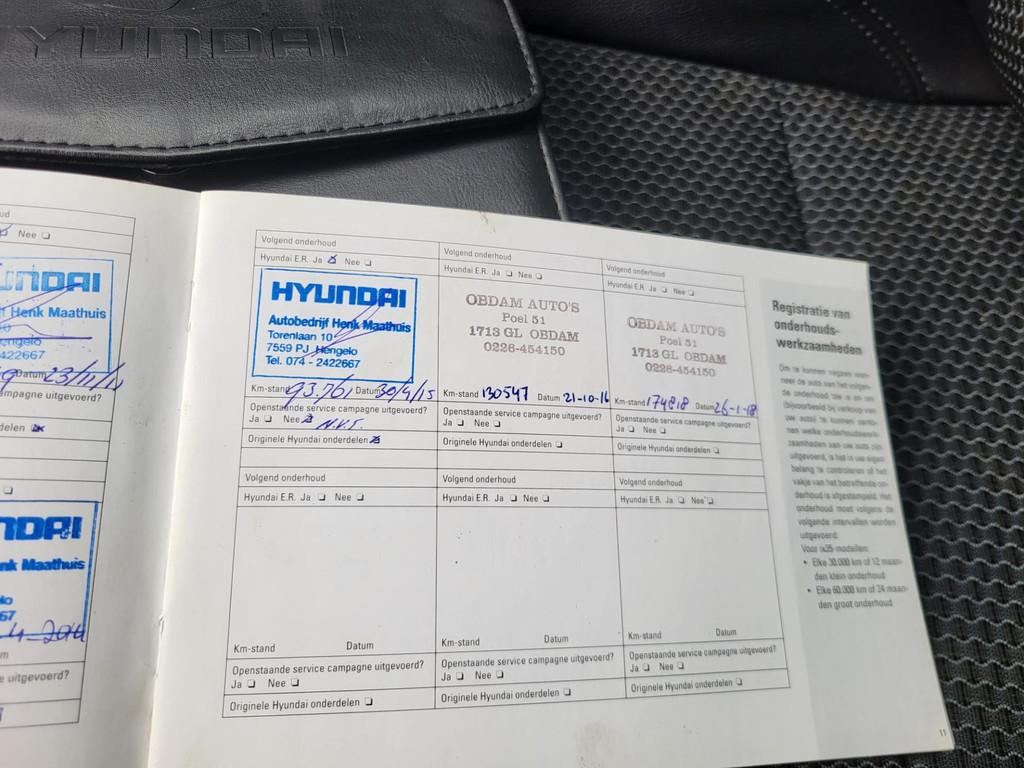 HYUNDAI
ud
Nee
UNDAI
Henk Maathuis
Hengelo
2422667
Datum 23/11/11
mpagne uitgevoerd?
delen
NDAI
nk Maathuis
lo
67
4-2014
m
e uitgevoerd?
Volgend onderhoud
Hyundai E.R. Ja Nee
HYUNDAI
Autobedrijf Henk Maathuis
Torenlaan 10
7559 PJ Hengelo
Tel. 074 - 2422667
Km-stand 93.761 Datum 30/4/15
Openstaande service campagne uitgevoerd?
Ja Nee N.V.T.
Originele Hyundai onderdelen
Volgend onderhoud
Hyundai E.R. Ja Nee
OBDAM AUTO'S
Poel 51
1713 GL OBDAM
0226-454150
Km-stand 130547 Datum 21-10-16
Openstaande service campagne uitgevoerd?
Ja Nee
Originele Hyundai onderdelen
Volgend onderhoud
Hyundai E.R. Ja Nee
OBDAM AUTO'S
Poel 51
1713 GL OBDAM
0226-454150
Km-stand 174818 Datum 26-1-18
Openstaande service campagne uitgevoerd?
Ja Nee
Originele Hyundai onderdelen
Volgend onderhoud
Hyundai E.R. Ja Nee
Km-stand Datum
Openstaande service campagne uitgevoerd?
Ja Nee
Originele Hyundai onderdelen
Volgend onderhoud
Hyundai E.R. Ja Nee
Km-stand Datum
Openstaande service campagne uitgevoerd?
Ja Nee
Originele Hyundai onderdelen
Volgend onderhoud
Hyundai E.R. Ja Nee
Km-stand Datum
Openstaande service campagne uitgevoerd?
Ja Nee
Originele Hyundai onderdelen
Registratie van
onderhouds-
werkzaamheden
Om te kunnen nagaan wan-
neer de auto aan het volgen-
de onderhoud toe is en om
(bijvoorbeeld bij verkoop van
uw auto) te kunnen aanto-
nen welke onderhoudswerk-
zaamheden aan uw auto zijn
uitgevoerd, is het in uw eigen
belang te controleren of het
vakje van het betreffende on-
derhoud is afgestempeld. Het
onderhoud moet volgens de
volgende intervallen worden
uitgevoerd:
Voor ix35-modellen:
• Elke 30.000 km of 12 maan-
den klein onderhoud
• Elke 60.000 km of 24 maan-
den groot onderhoud
11